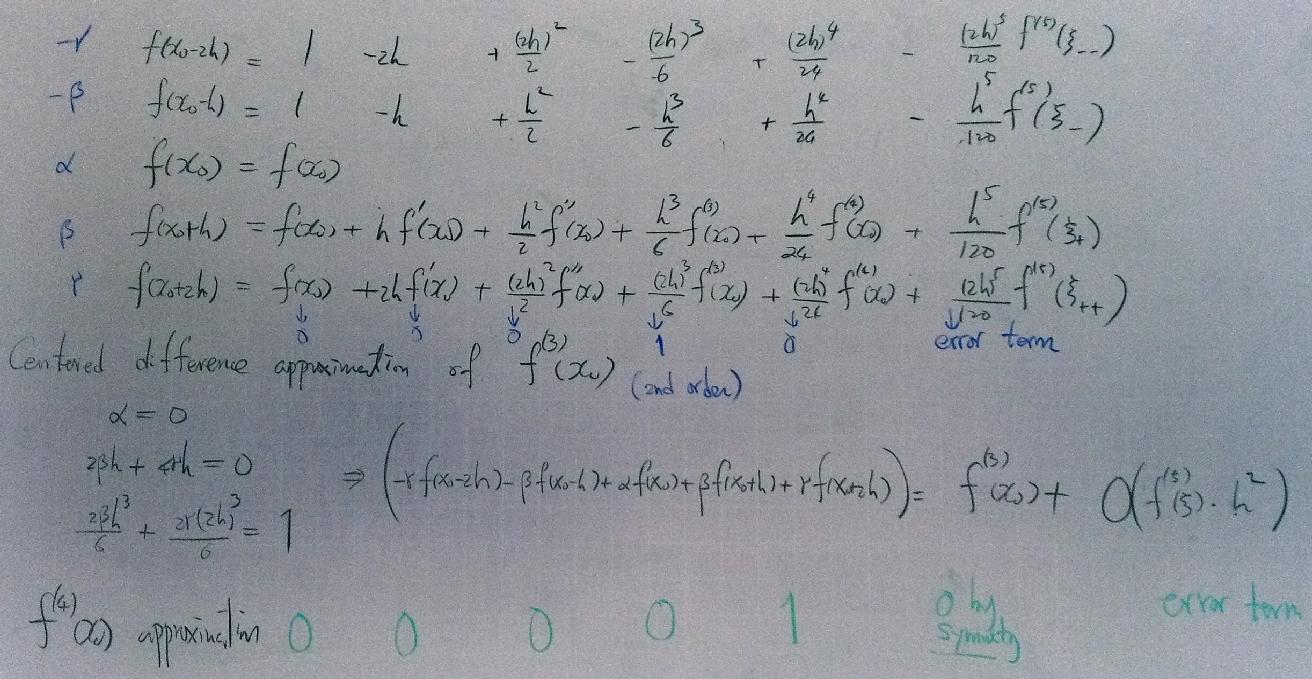 -γ f(x₀-2h) = 1 -2h + (2h)²/2 - (2h)³/6 + (2h)⁴/24 - (2h)⁵/120 f⁽⁵⁾(ξ₋₋)
-β f(x₀-h) = 1 -h + h²/2 - h³/6 + h⁴/24 - h⁵/120 f⁽⁵⁾(ξ₋)
α f(x₀) = f(x₀)
β f(x₀+h) = f(x₀) + h f'(x₀) + h²/2 f''(x₀) + h³/6 f⁽³⁾(x₀) + h⁴/24 f⁽⁴⁾(x₀) + h⁵/120 f⁽⁵⁾(ξ₊)
γ f(x₀+2h) = f(x₀) + 2h f'(x₀) + (2h)²/2 f''(x₀) + (2h)³/6 f⁽³⁾(x₀) + (2h)⁴/24 f⁽⁴⁾(x₀) + (2h)⁵/120 f⁽⁵⁾(ξ₊₊)
↓ ↓ ↓ ↓ ↓ ↓
0 0 0 1 0 error term
Centered difference approximation of f⁽³⁾(x₀) (2nd order)
α = 0
2βh + 4γh = 0 ⇒ (-γf(x₀-2h) - βf(x₀-h) + αf(x₀) + βf(x₀+h) + γf(x₀+2h)) = f⁽³⁾(x₀) + O(f⁽⁵⁾(ξ)·h²)
2βh³/6 + 2γ(2h)³/6 = 1
f⁽⁴⁾(x₀) approximation 0 0 0 0 1 0 by symmetry error term